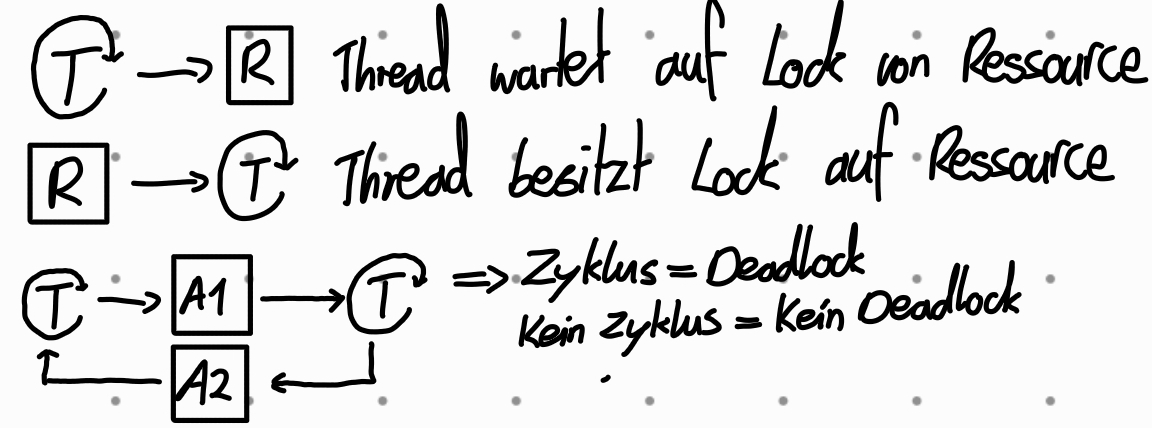 T → R Thread wartet auf Lock von Ressource
R → T Thread besitzt Lock auf Ressource
T → A1 → T ⇒ Zyklus = Deadlock
Kein Zyklus = Kein Deadlock
A2